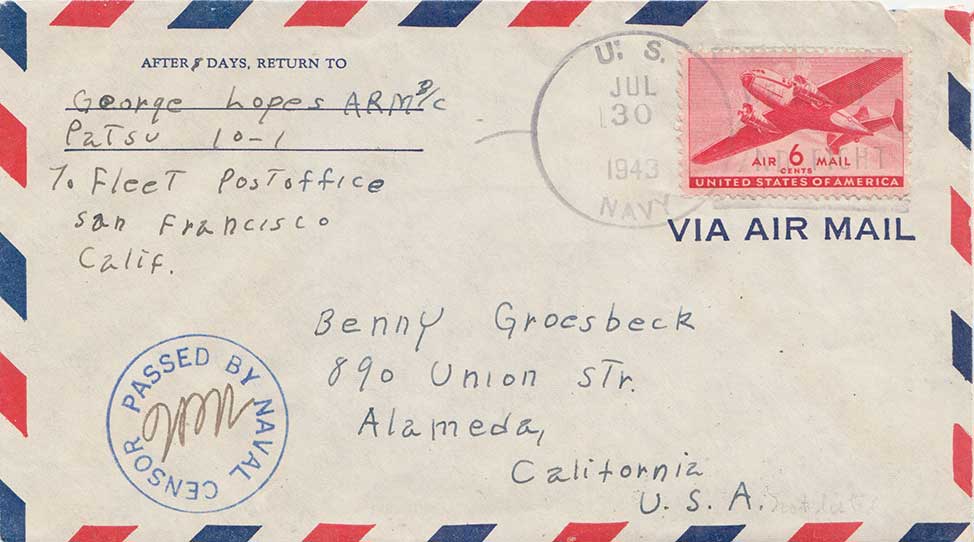 AFTER 8 DAYS, RETURN TO
George Lopes ARM 3/c
Patsu 10-1
℅ Fleet Postoffice
San Francisco
Calif.
U. S.
JUL
30
1943
NAVY
AIR 6 MAIL
CENTS
UNITED STATES OF AMERICA
VIA AIR MAIL
Benny Groesbeck
890 Union Str.
Alameda,
California
U. S. A.
PASSED BY NAVAL CENSOR